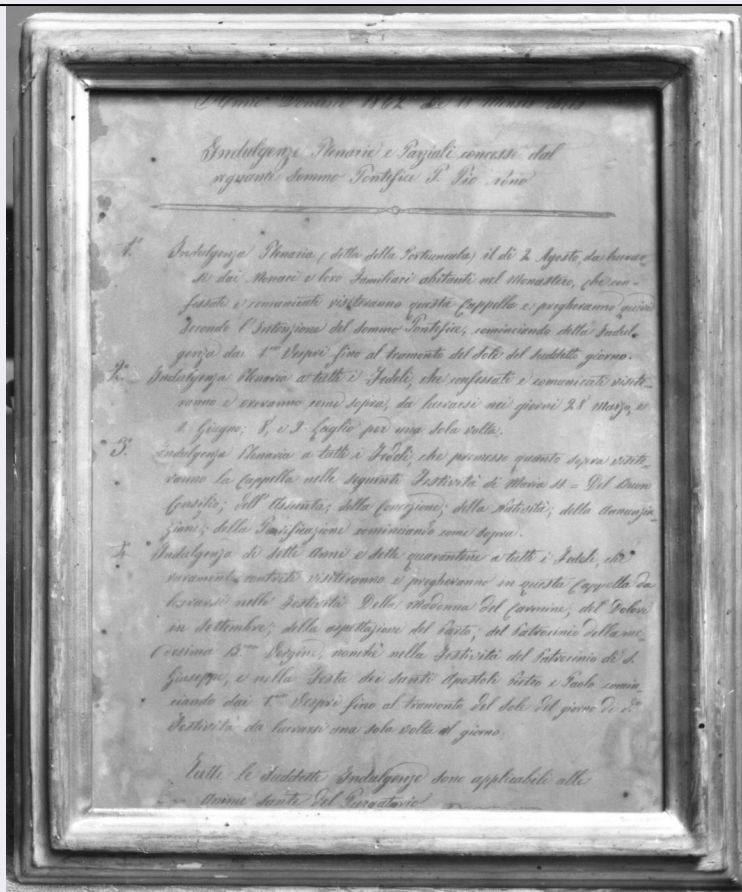 Anno Domini 1862
Indulgenze Plenarie e Parziali concesse dal
regnante Sommo Pontefice P. Pio nono
1.° Indulgenza Plenaria (detta della Portiuncula) il di 2 Agosto, da lucrar-
si dai Monaci e loro Familiari abitanti nel Monastero, che con-
fessati e comunicati visiteranno questa Cappella e pregheranno quivi
secondo l'Intenzione del Sommo Pontefice, cominciando della Indul-
genza dai 1.mi Vespri fino al tramonto del Sole del suddetto giorno.
2.° Indulgenza Plenaria a tutti i Fedeli, che confessati e comunicati visite-
ranno e oreranno come sopra, da lucrarsi nei giorni 28 Marzo, e
Giugno; 1, e 3 Luglio per una sola volta.
3.° Indulgenza Plenaria a tutti i Fedeli, che premesso quanto sopra visite-
ranno la Cappella nelle seguenti Festività di Maria SS = Del Buon
Consilio; dell'Assunta; della Concezione; della Natività; della Annunzia-
zione; della Purificazione cominciando come sopra.
4.° Indulgenza di sette Anni e sette quarantene a tutti i Fedeli, che
veramente contriti visiteranno e pregheranno in questa Cappella da
lucrarsi nelle Festività Della Madonna del Carmine, del Dolore
in Settembre; della aspettazione del Parto; del Patrocinio della me-
desima B.ma Vergine, nonché nella Festività del Patrocinio di S.
Giuseppe, e nella Festa dei Santi Apostoli Pietro e Paolo comin-
ciando dai 1.mi Vespri fino al tramonto del Sole del giorno di d.a
Festività da lucrarsi una sola volta al giorno.
Tutte le suddette Indulgenze sono applicabili alle
Anime Sante del Purgatorio